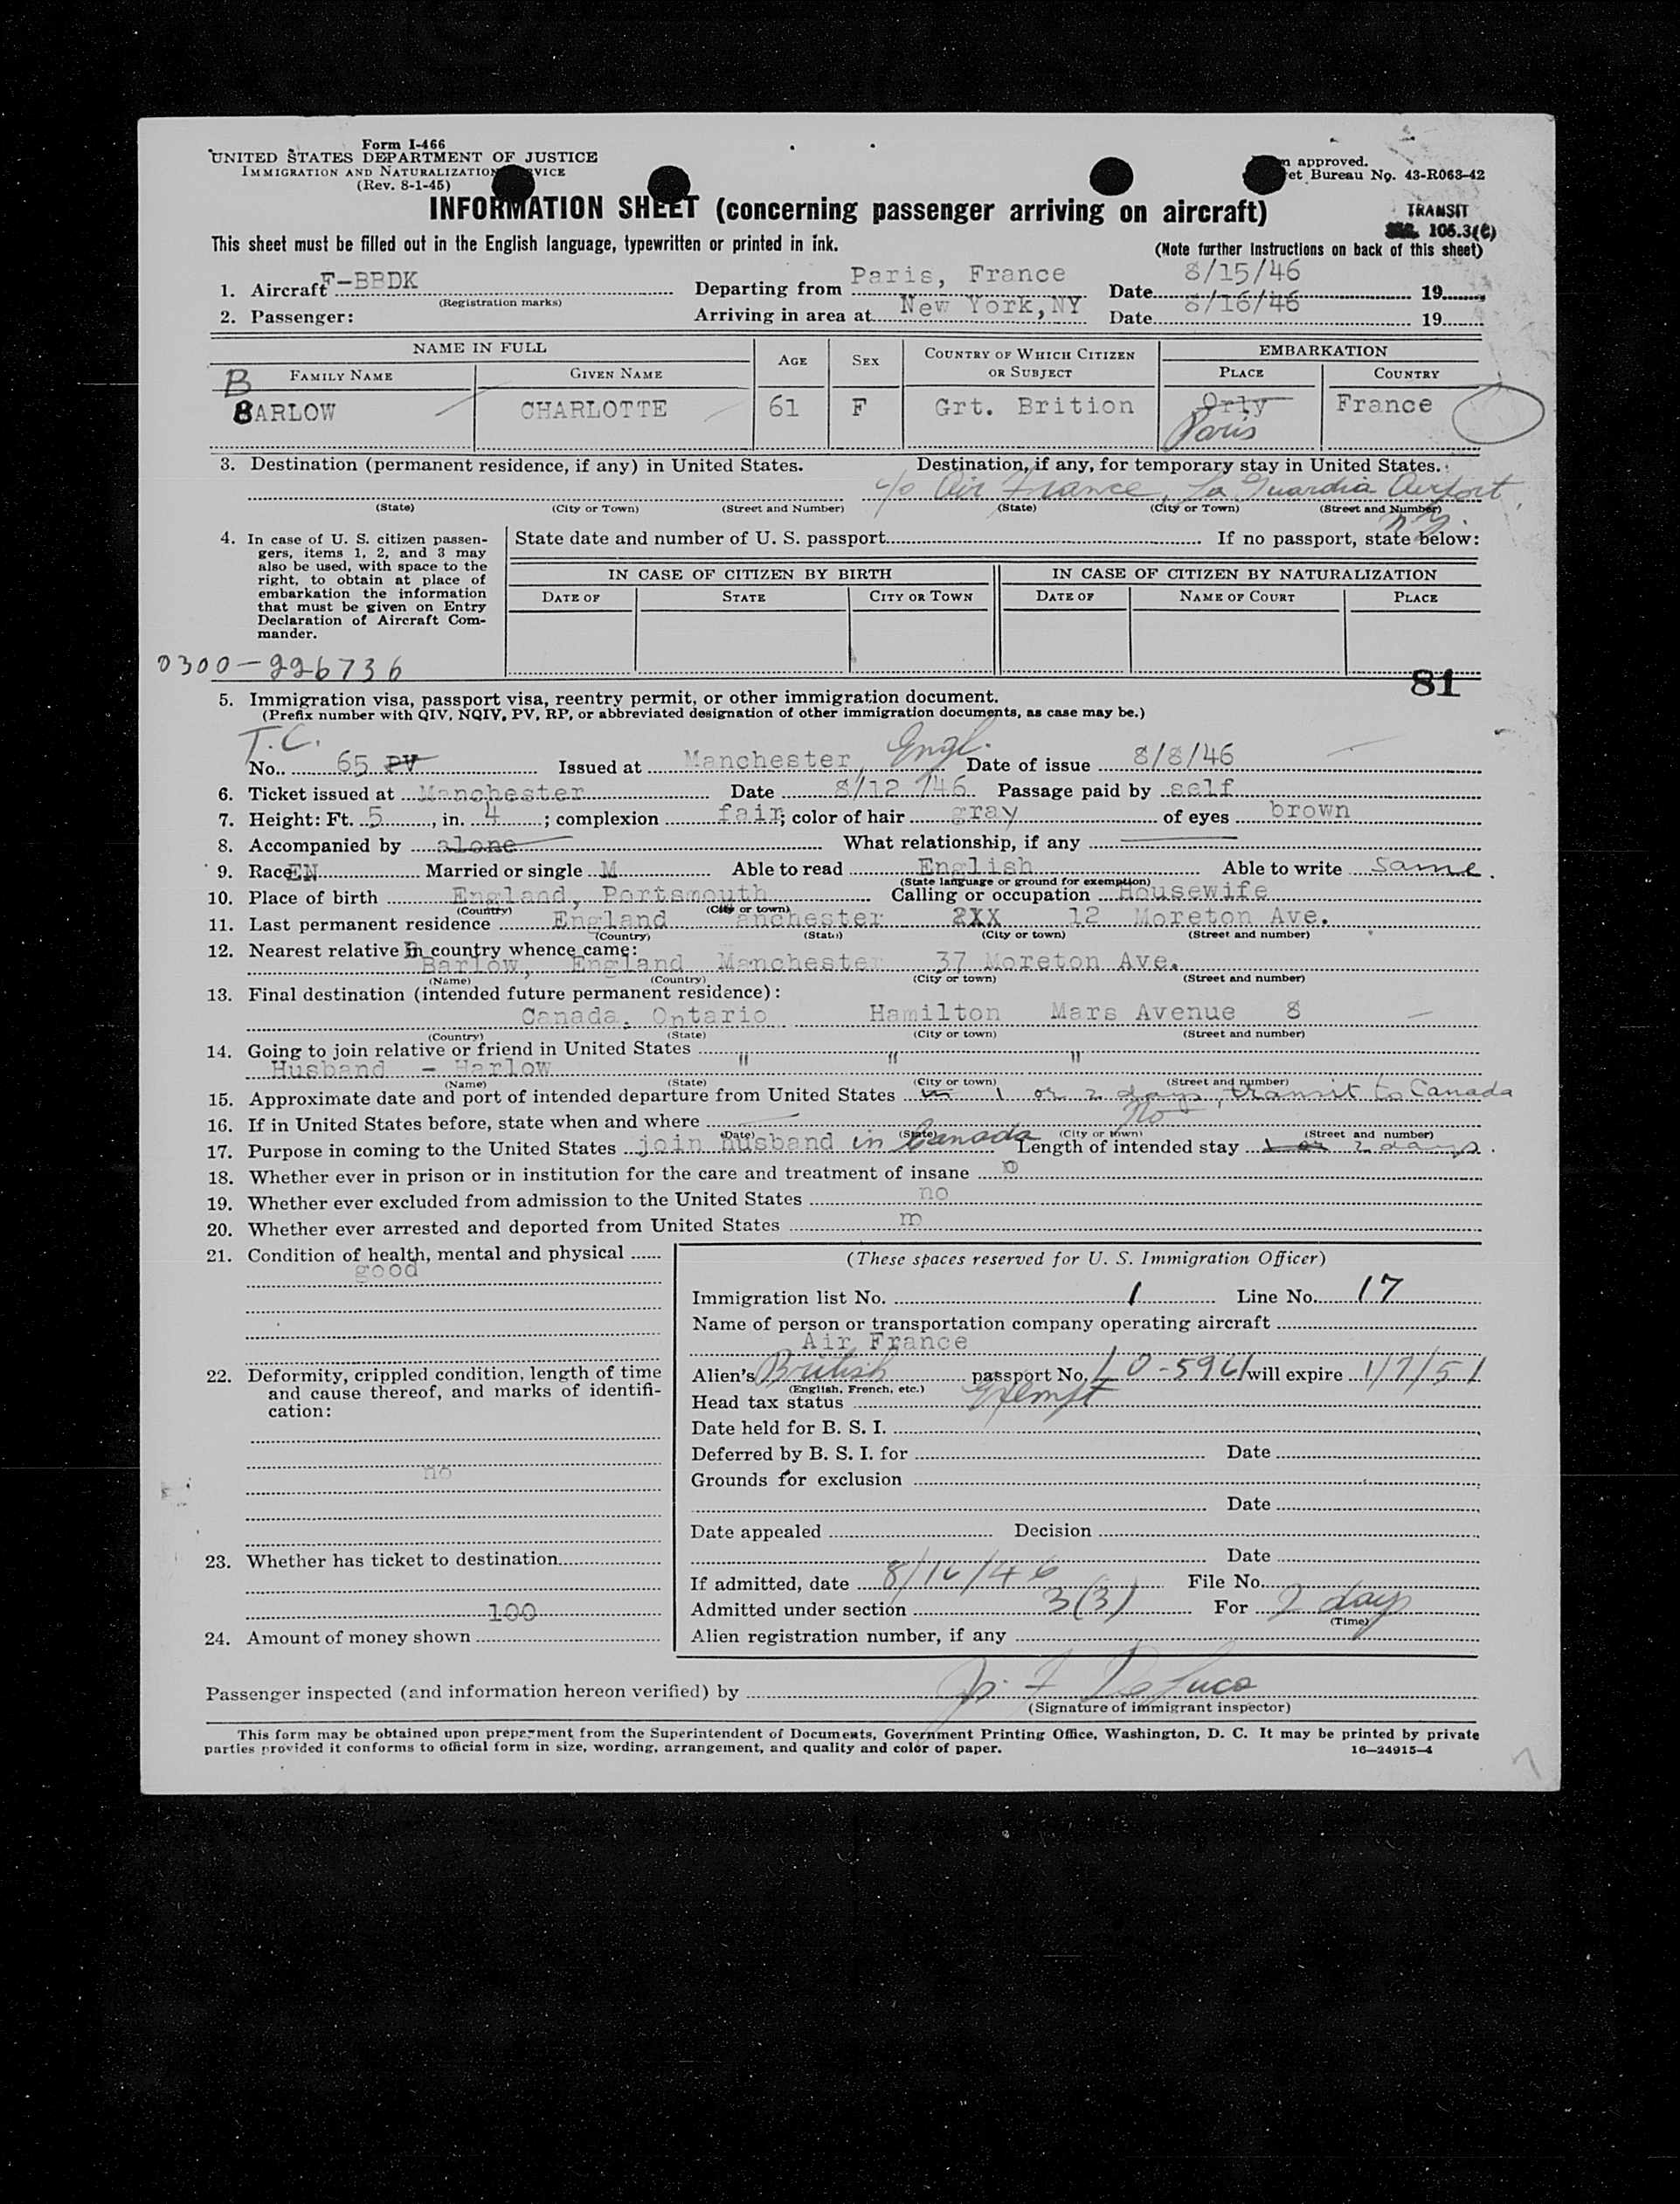 Form I-466
UNITED STATES DEPARTMENT OF JUSTICE
IMMIGRATION AND NATURALIZATION SERVICE
(Rev. 8-1-45)
approved.
et Bureau No. 43-R063-42
INFORMATION SHEET (concerning passenger arriving on aircraft)
TRANSIT
105.3(C)
This sheet must be filled out in the English language, typewritten or printed in ink.
(Note further Instructions on back of this sheet)
1. Aircraft F-BBDK Departing from Paris, France Date 8/15/46 19
(Registration marks)
2. Passenger: Arriving in area at New York, NY Date 8/16/46 19
NAME IN FULL AGE SEX COUNTRY OF WHICH CITIZEN OR SUBJECT EMBARKATION
FAMILY NAME GIVEN NAME PLACE COUNTRY
B
BARLOW CHARLOTTE 61 F Grt. Brition Orly France
Paris
3. Destination (permanent residence, if any) in United States. Destination, if any, for temporary stay in United States.
c/o Air France, La Guardia Airport,
(State) (City or Town) (Street and Number) (State) (City or Town) (Street and Number)
N.Y.
4. In case of U. S. citizen passengers, items 1, 2, and 3 may also be used, with space to the right, to obtain at place of embarkation the information that must be given on Entry Declaration of Aircraft Commander.
State date and number of U. S. passport If no passport, state below:
IN CASE OF CITIZEN BY BIRTH IN CASE OF CITIZEN BY NATURALIZATION
DATE OF STATE CITY OR TOWN DATE OF NAME OF COURT PLACE
0300-226736
81
5. Immigration visa, passport visa, reentry permit, or other immigration document.
(Prefix number with QIV, NQIV, PV, RP, or abbreviated designation of other immigration documents, as case may be.)
T.C.
No. 65 PV Issued at Manchester, Engl. Date of issue 8/8/46
6. Ticket issued at Manchester Date 8/12/46 Passage paid by self
7. Height: Ft. 5, in. 4; complexion fair; color of hair gray of eyes brown
8. Accompanied by alone What relationship, if any
9. Race EN Married or single M Able to read English Able to write same.
(State language or ground for exemption)
10. Place of birth England, Portsmouth Calling or occupation Housewife
(Country) (City or town)
11. Last permanent residence England anchester 2XX 12 Moreton Ave.
(Country) (State) (City or town) (Street and number)
12. Nearest relative in country whence came:
Barlow, England Manchester 37 Moreton Ave.
(Name) (Country) (City or town) (Street and number)
13. Final destination (intended future permanent residence):
Canada, Ontario Hamilton Mars Avenue 8
(Country) (State) (City or town) (Street and number)
14. Going to join relative or friend in United States
Husband - Harlow " " "
(Name) (State) (City or town) (Street and number)
15. Approximate date and port of intended departure from United States in 1 or 2 days, transit to Canada
16. If in United States before, state when and where No
(Date) (State) (City or town) (Street and number)
17. Purpose in coming to the United States join husband in Canada Length of intended stay 1 or 2 days.
18. Whether ever in prison or in institution for the care and treatment of insane
19. Whether ever excluded from admission to the United States no
20. Whether ever arrested and deported from United States
21. Condition of health, mental and physical
good
(These spaces reserved for U. S. Immigration Officer)
Immigration list No. 1 Line No. 17
Name of person or transportation company operating aircraft
Air France
22. Deformity, crippled condition, length of time and cause thereof, and marks of identification:
no
Alien's British passport No. L0-5961 will expire 1/7/51
(English, French, etc.)
Head tax status Exempt
Date held for B. S. I.
Deferred by B. S. I. for Date
Grounds for exclusion
Date
Date appealed Decision
Date
23. Whether has ticket to destination
100
If admitted, date 8/16/46 File No.
Admitted under section 3(3) For 2 days
(Time)
24. Amount of money shown
Alien registration number, if any
Passenger inspected (and information hereon verified) by
(Signature of immigrant inspector)
This form may be obtained upon prepayment from the Superintendent of Documents, Government Printing Office, Washington, D. C. It may be printed by private
parties provided it conforms to official form in size, wording, arrangement, and quality and color of paper.
16—24915-4